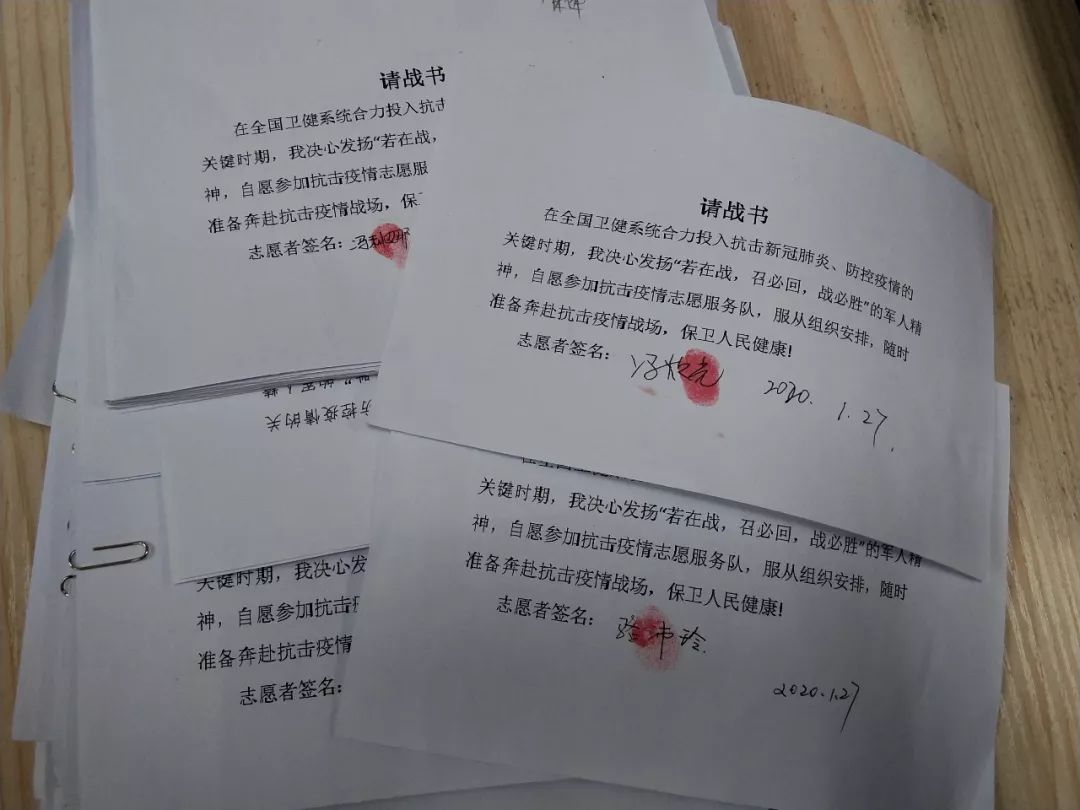 请战书
在全国卫健系统合力投入抗击
关键时期，我决心发扬“若在战，
神，自愿参加抗击疫情志愿服
准备奔赴抗击疫情战场，保
志愿者签名：
请战书
在全国卫健系统合力投入抗击新冠肺炎、防控疫情的
关键时期，我决心发扬“若在战，召必回，战必胜”的军人精
神，自愿参加抗击疫情志愿服务队，服从组织安排，随时
准备奔赴抗击疫情战场，保卫人民健康!
志愿者签名：
2020. 1.27.
防控疫情的关
关键时期，我决心发扬“若在战，召必回，战必胜”的军人精
神，自愿参加抗击疫情志愿服务队，服从组织安排，随时
准备奔赴抗击疫情战场，保卫人民健康!
志愿者签名：
2020.1.27
关键时期，我决心发
神，自愿参加抗击
准备奔赴抗击疫情
志愿者签名：